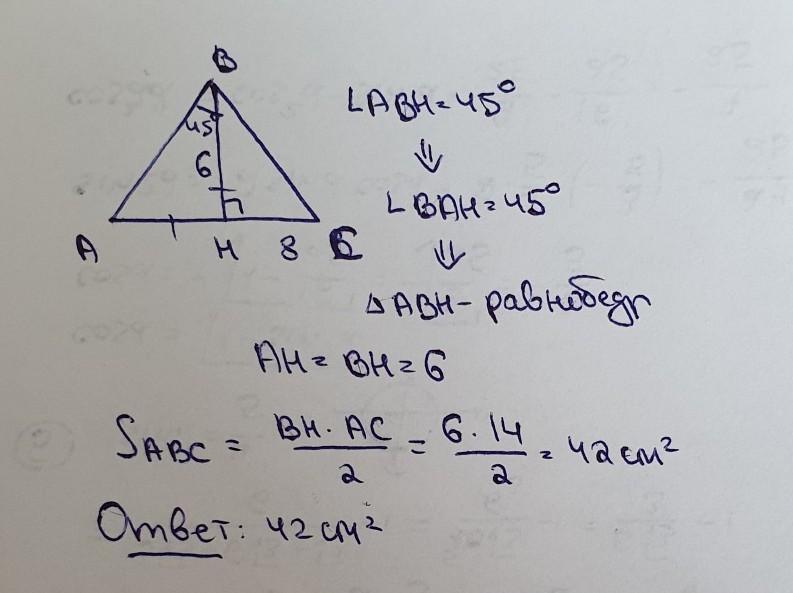 B
∠ABH = 45°
45°
⇓
6
∠BAH = 45°
A H 8 C
⇓
△ABH - равнобедр
AH = BH = 6
S_ABC = (BH · AC)/2 = (6 · 14)/2 = 42 см²
Ответ: 42 см²